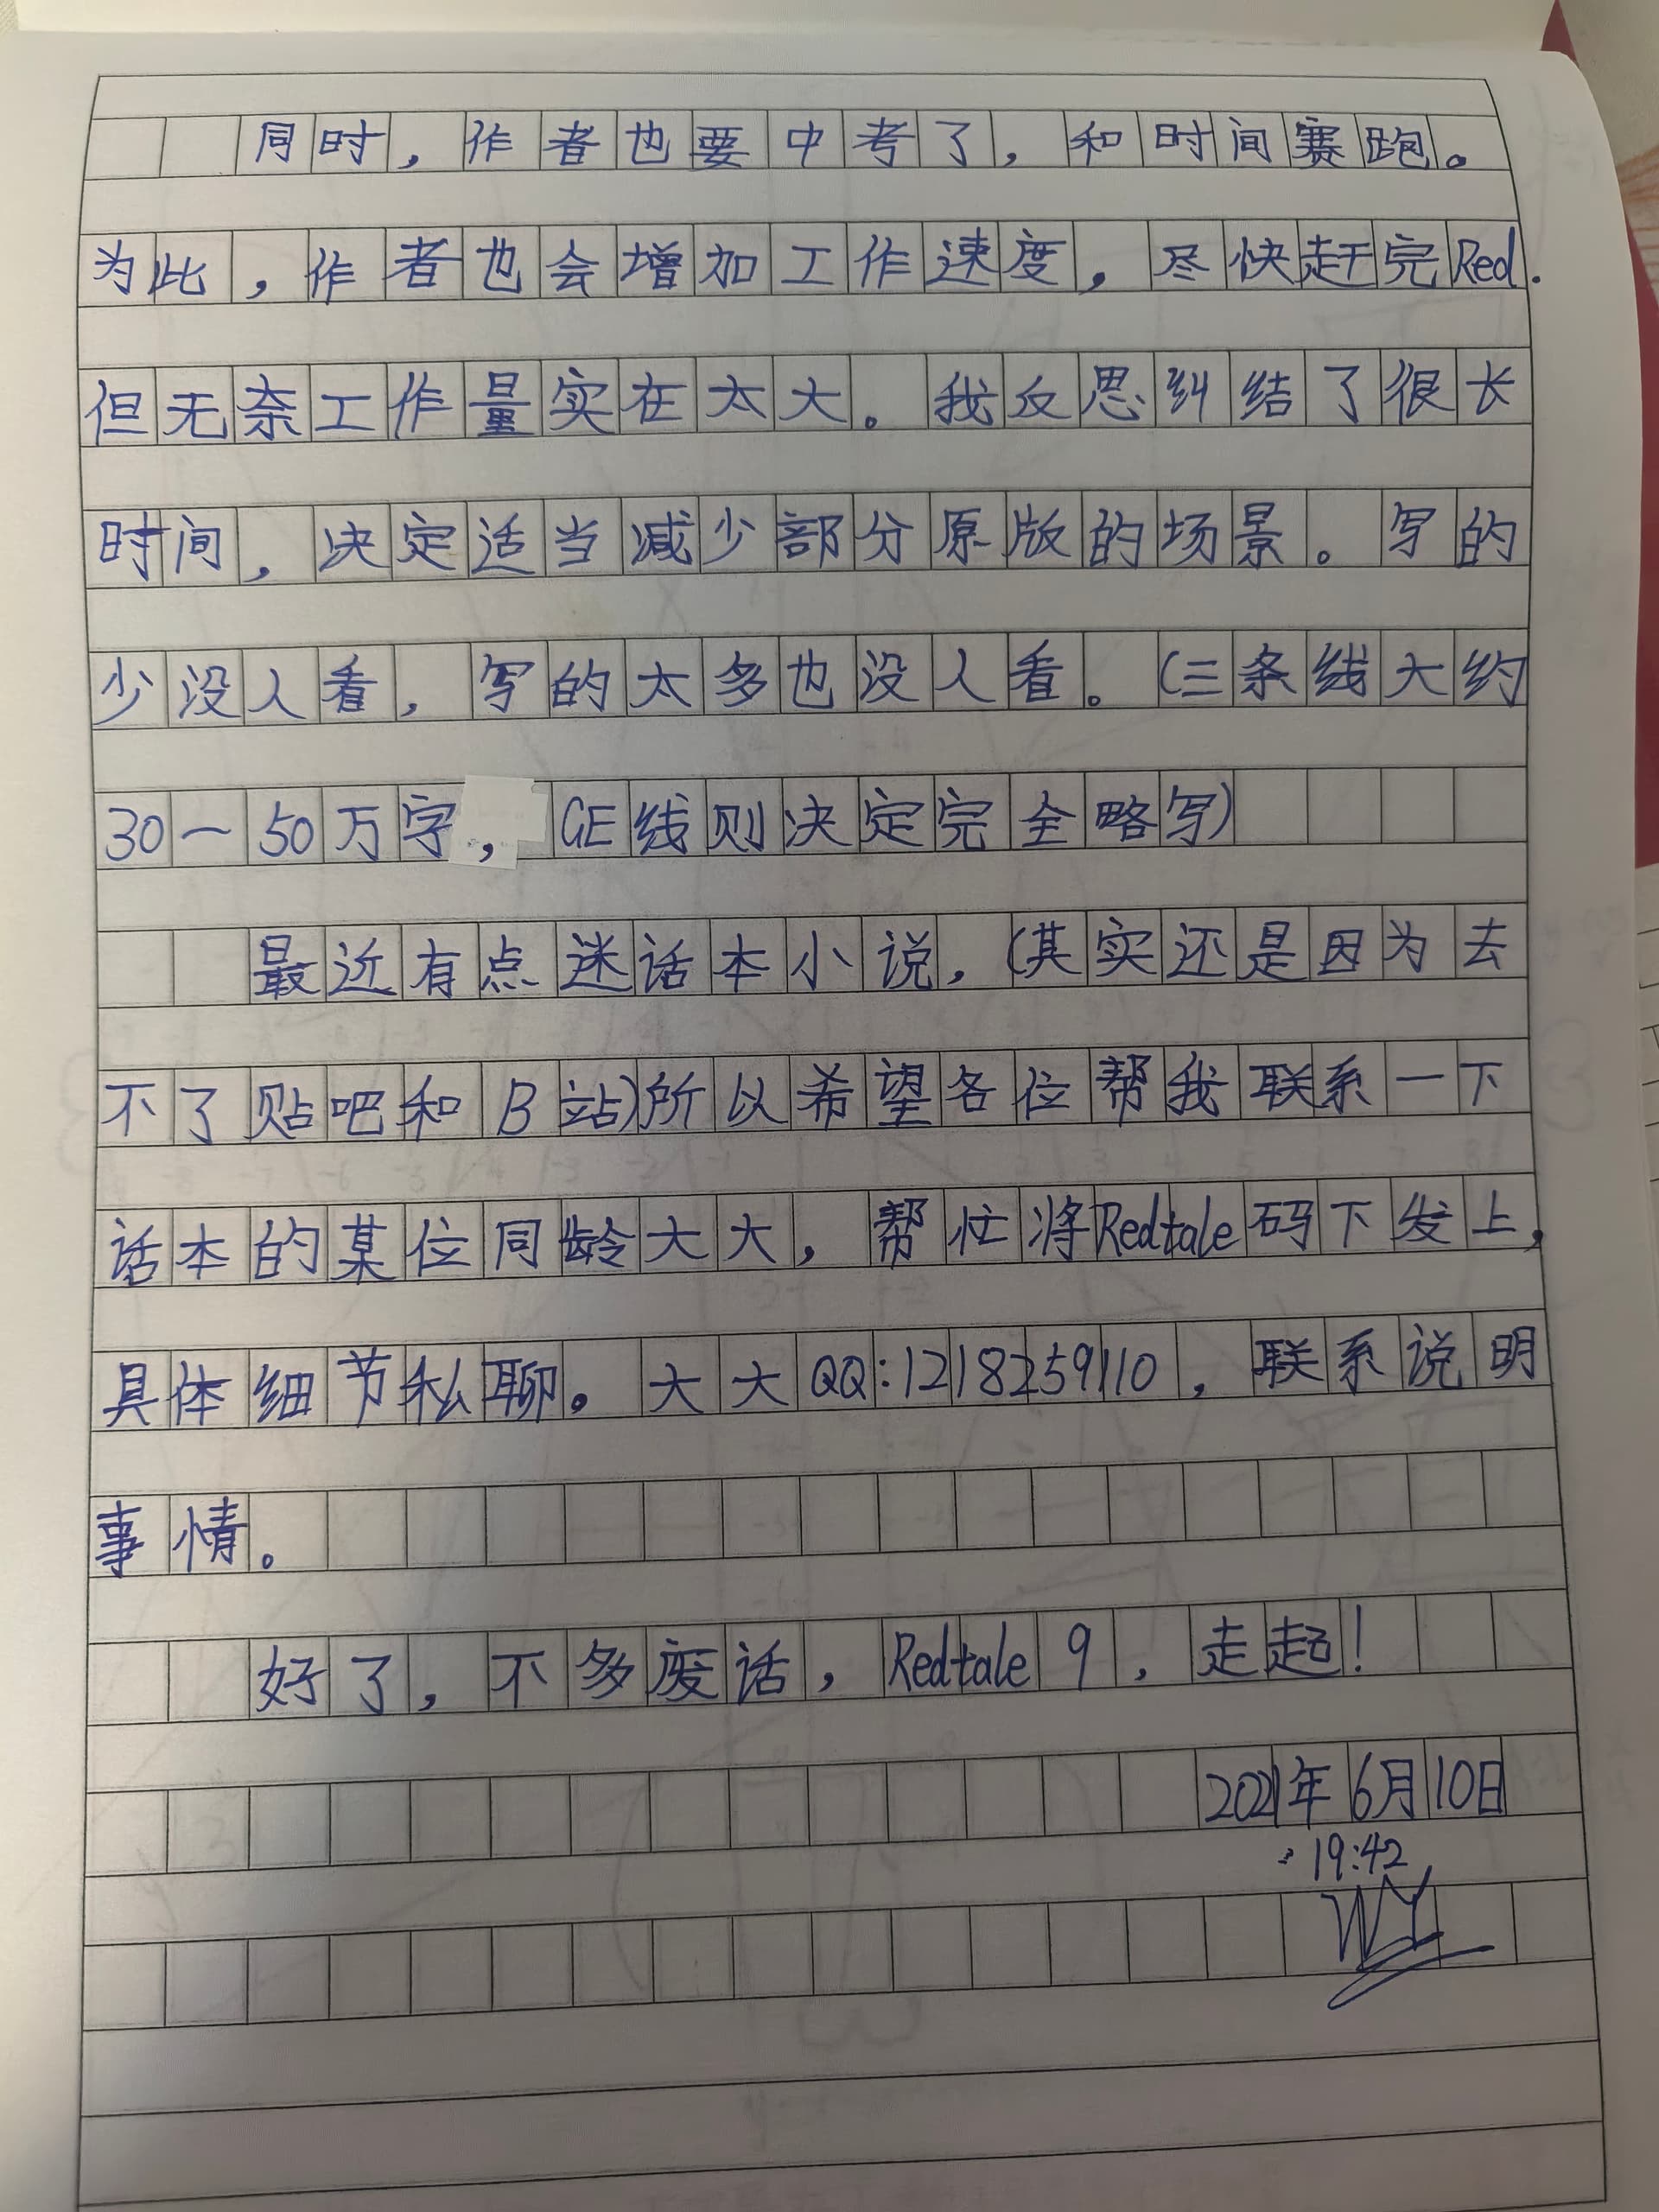 同时，作者也要中考了，和时间赛跑。
为此，作者也会增加工作速度，尽快赶完Red.
但无奈工作量实在太大。我反思纠结了很长
时间，决定适当减少部分原版的场景。写的
少没人看，写的太多也没人看。（三条线大约
30一50万字，GE线则决定完全略写）
最近有点迷话本小说，（其实还是因为去
不了贴吧和B站）所以希望各位帮我联系一下
话本的某位同龄大大，帮忙将Redtale码下发上，
具体细节私聊。大大QQ:1218259110，联系说明
事情。
好了，不多废话，Redtale 9，走起！
2021年6月10日
19:42
WY